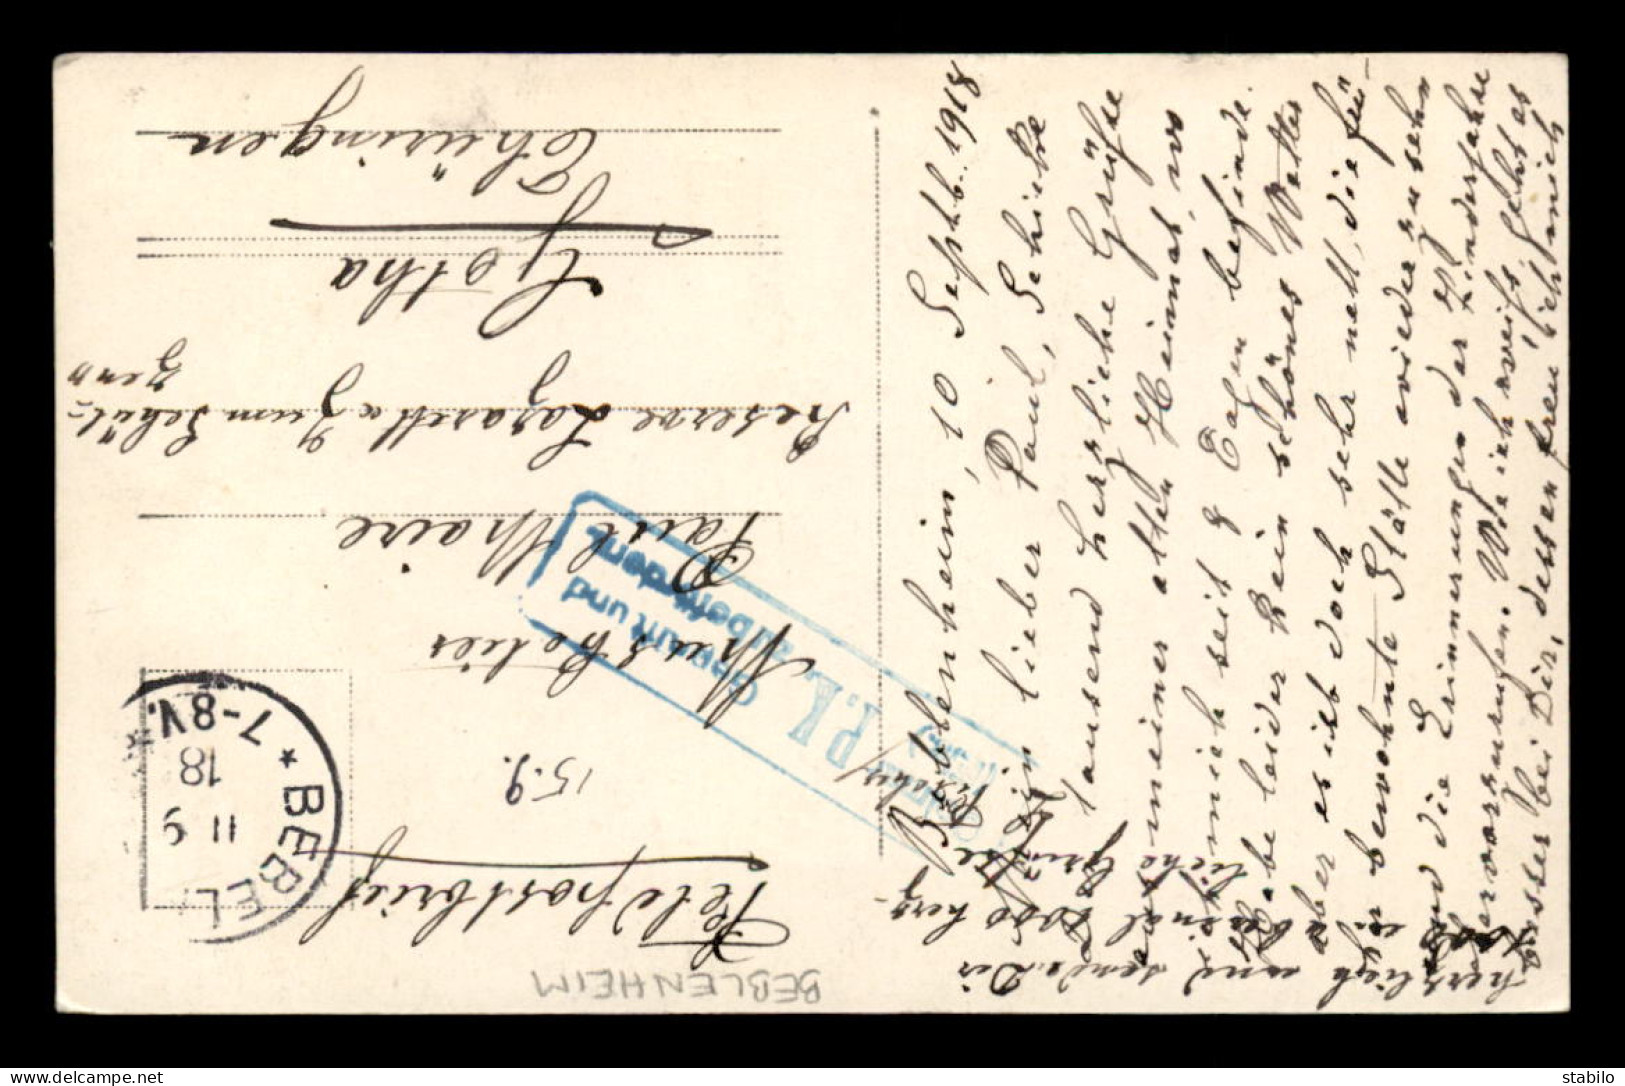 Feldpostbrief
15.9.
Musketier
Paul Maire
Reserve Lazarett α Zum Schüt-
zen
Gotha
Thüringen
BEBLENHEIM
BEBEL
11 9
18
7-8V.
Geprüft und
zu befördern
P.K.
Beblenheim, 10 Septb. 1918
Mein lieber Paul, Schicke
Tausend herzliche Grüße
aus meiner alten Heimat, wo
ich mich seit 8 Tagen befinde.
Habe leider kein schönes Wetter
aber es ist doch sehr nett, die frü-
her bewohnte Stätte wiederzusehn
und die Erinnerungen der Kinderjahre
hervorzurufen. Wie ich weiß, geht es
besser bei Dir, dessen freu ich mich
herzlich und sende Dir
1000 herz-
liche Grüße